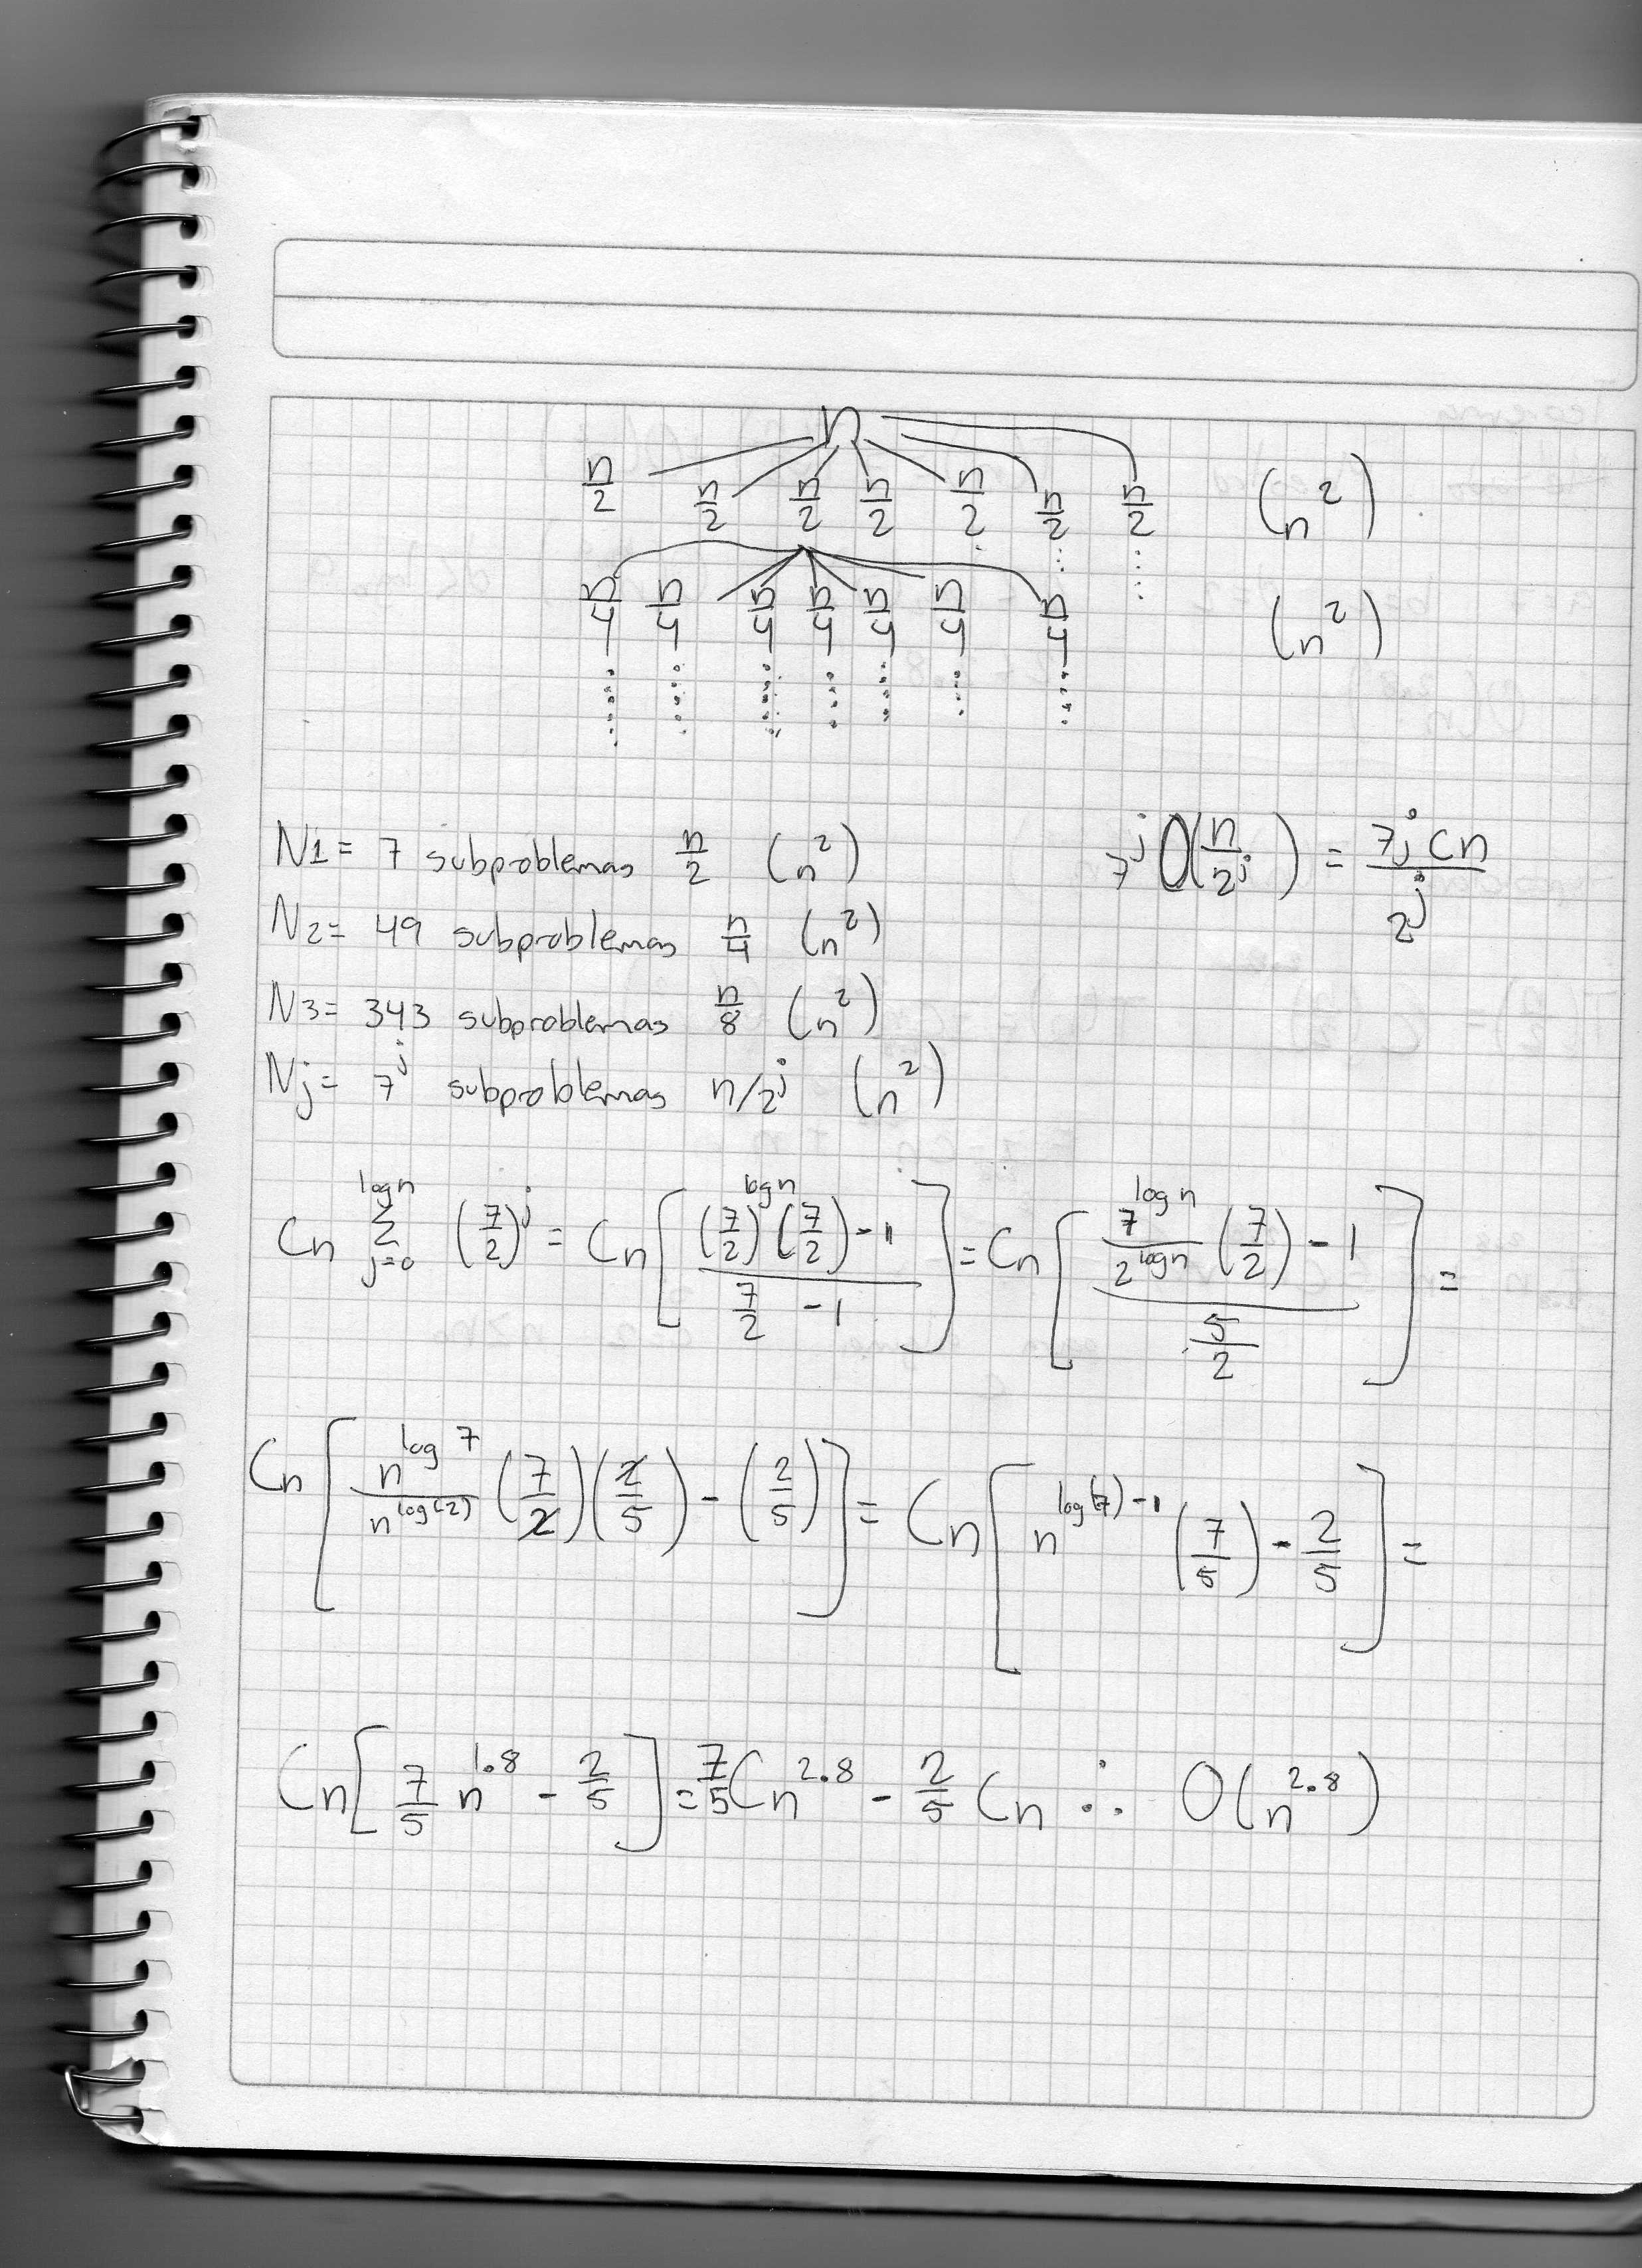 n
n/2 n/2 n/2 n/2 n/2 n/2 n/2 (n²)
n/4 n/4 n/4 n/4 n/4 n/4 n/4 (n²)
N1= 7 subproblemas n/2 (n²)
7^j O(n/2^j) = 7^j cn / 2^j
N2= 49 subproblemas n/4 (n²)
N3= 343 subproblemas n/8 (n²)
Nj= 7^j subproblemas n/2^j (n²)
Cn Σ_{j=0}^{log n} (7/2)^j = Cn [ ((7/2)^{log n} (7/2) - 1) / (7/2 - 1) ] = Cn [ (7^{log n}/2^{log n} (7/2) - 1) / (5/2) ] =
Cn [ n^{log 7}/n^{log(2)} (7/2)(2/5) - (2/5) ] = Cn [ n^{log(7)-1} (7/5) - 2/5 ] =
Cn [ 7/5 n^{1.8} - 2/5 ] = 7/5 Cn^{2.8} - 2/5 Cn ∴ O(n^{2.8})